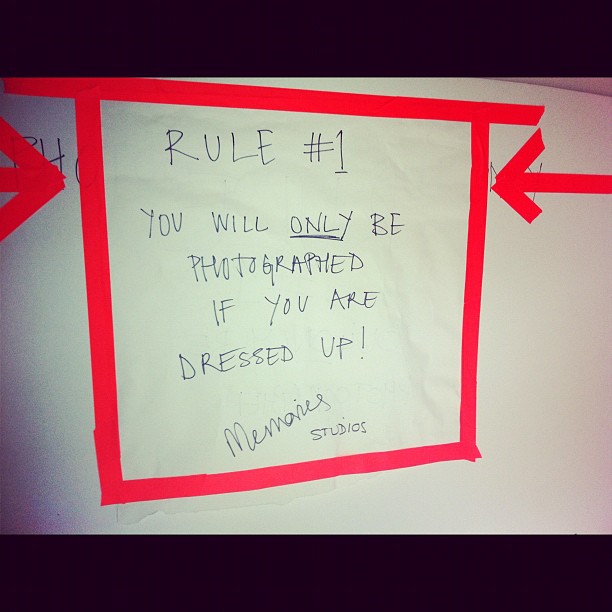 RULE #1
YOU WILL ONLY BE
PHOTOGRAPHED
IF YOU ARE
DRESSED UP!
Memoires
STUDIOS